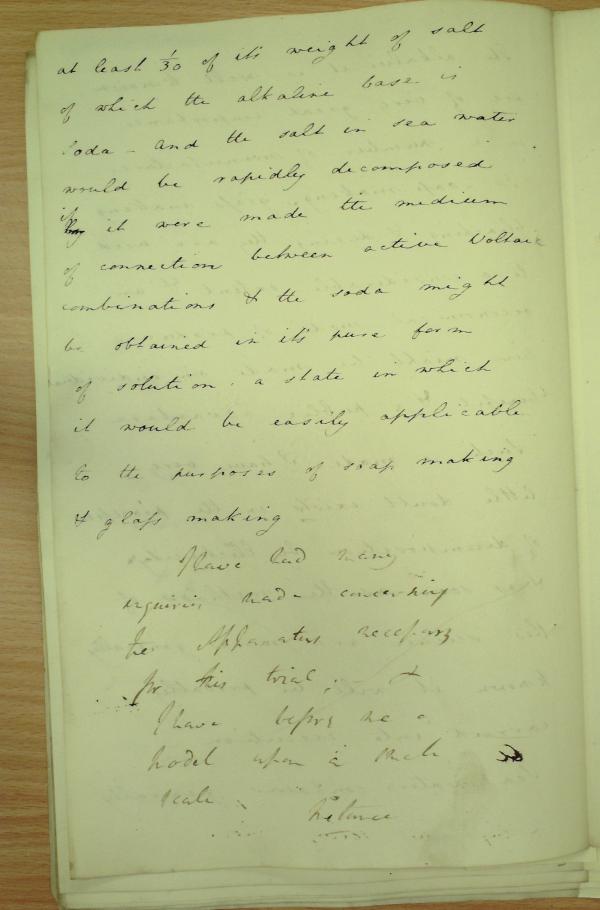 at least 1/30 of it's weight of salt
of which the alkaline base is
Soda – and the salt in sea water
would be rapidly decomposed
if
it were made the medium
of connection between active Voltaic
combinations & the soda might
be obtained in it's pure form
of solution. a state in which
it would be easily applicable
to the purposes of soap making
& glass making
I have had many
enquiries made concerning
the Apparatus necessary
for this trial; &
I have before me a
model upon a
scale